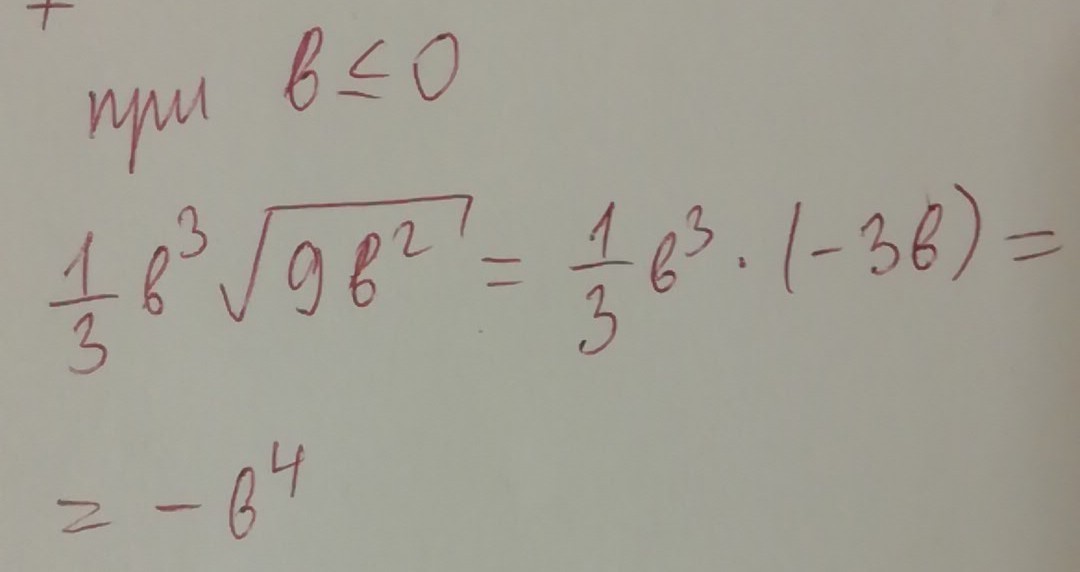 +
при в ≤ 0
1/3 в³ √(9в²) = 1/3 в³ · (-3в) =
= - в⁴